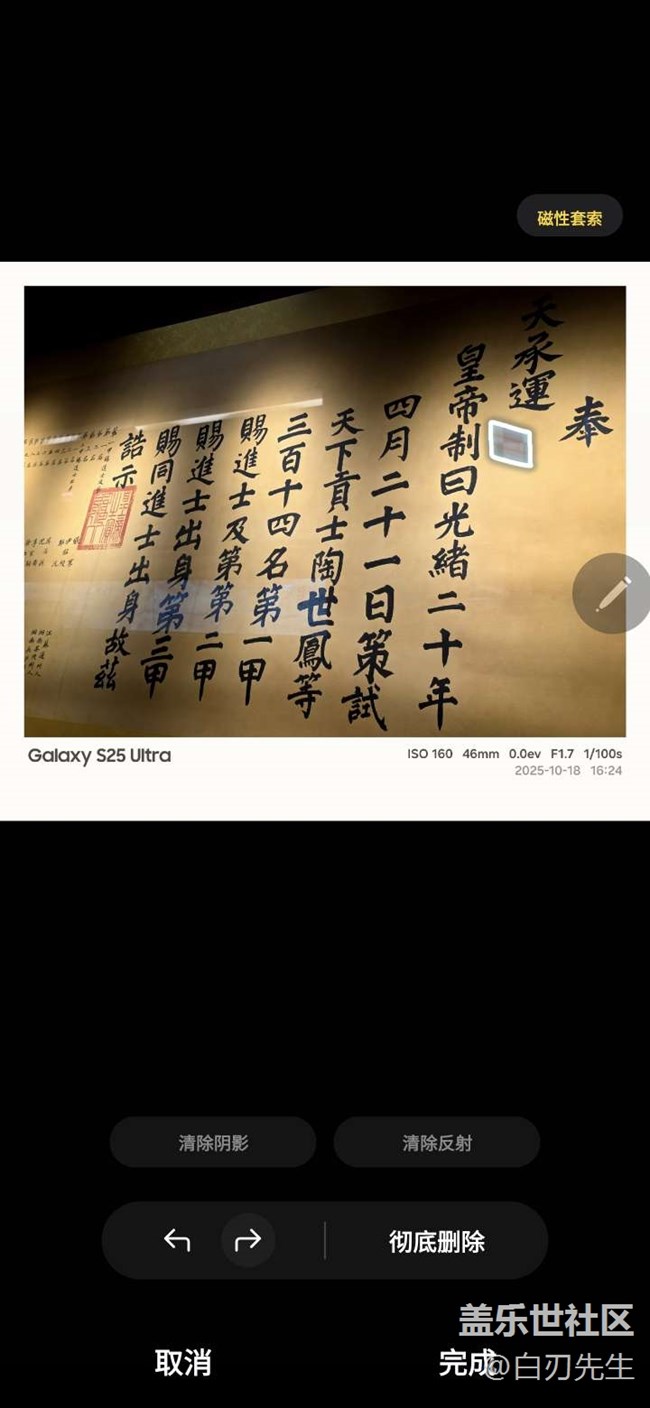 磁性套索
奉
天承運
皇帝制曰光緒二十年
四月二十一日策試
天下貢士陶世鳳等
三百十四名第一甲
賜進士及第第二甲
賜進士出身第三甲
賜同進士出身故茲
誥示
Galaxy S25 Ultra
ISO 160 46mm 0.0ev F1.7 1/100s
2025-10-18 16:24
清除阴影 清除反射
彻底删除
盖乐世社区
取消 完成
@白刃先生